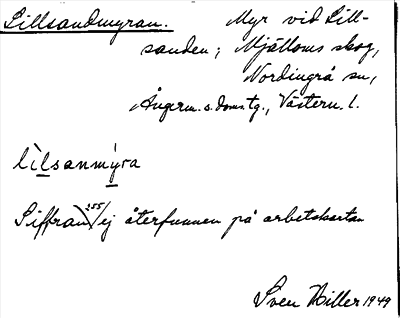 Lillsandmyran. Myr vid Lill-
sanden; Mjälloms skog,
Nordingrå sn,
Ångerm. s. doms.tg., Västern. l.
lìlsanmýra
Siffran 255/ ej återfunnen på arbetskartan
Sven Hiller 1949